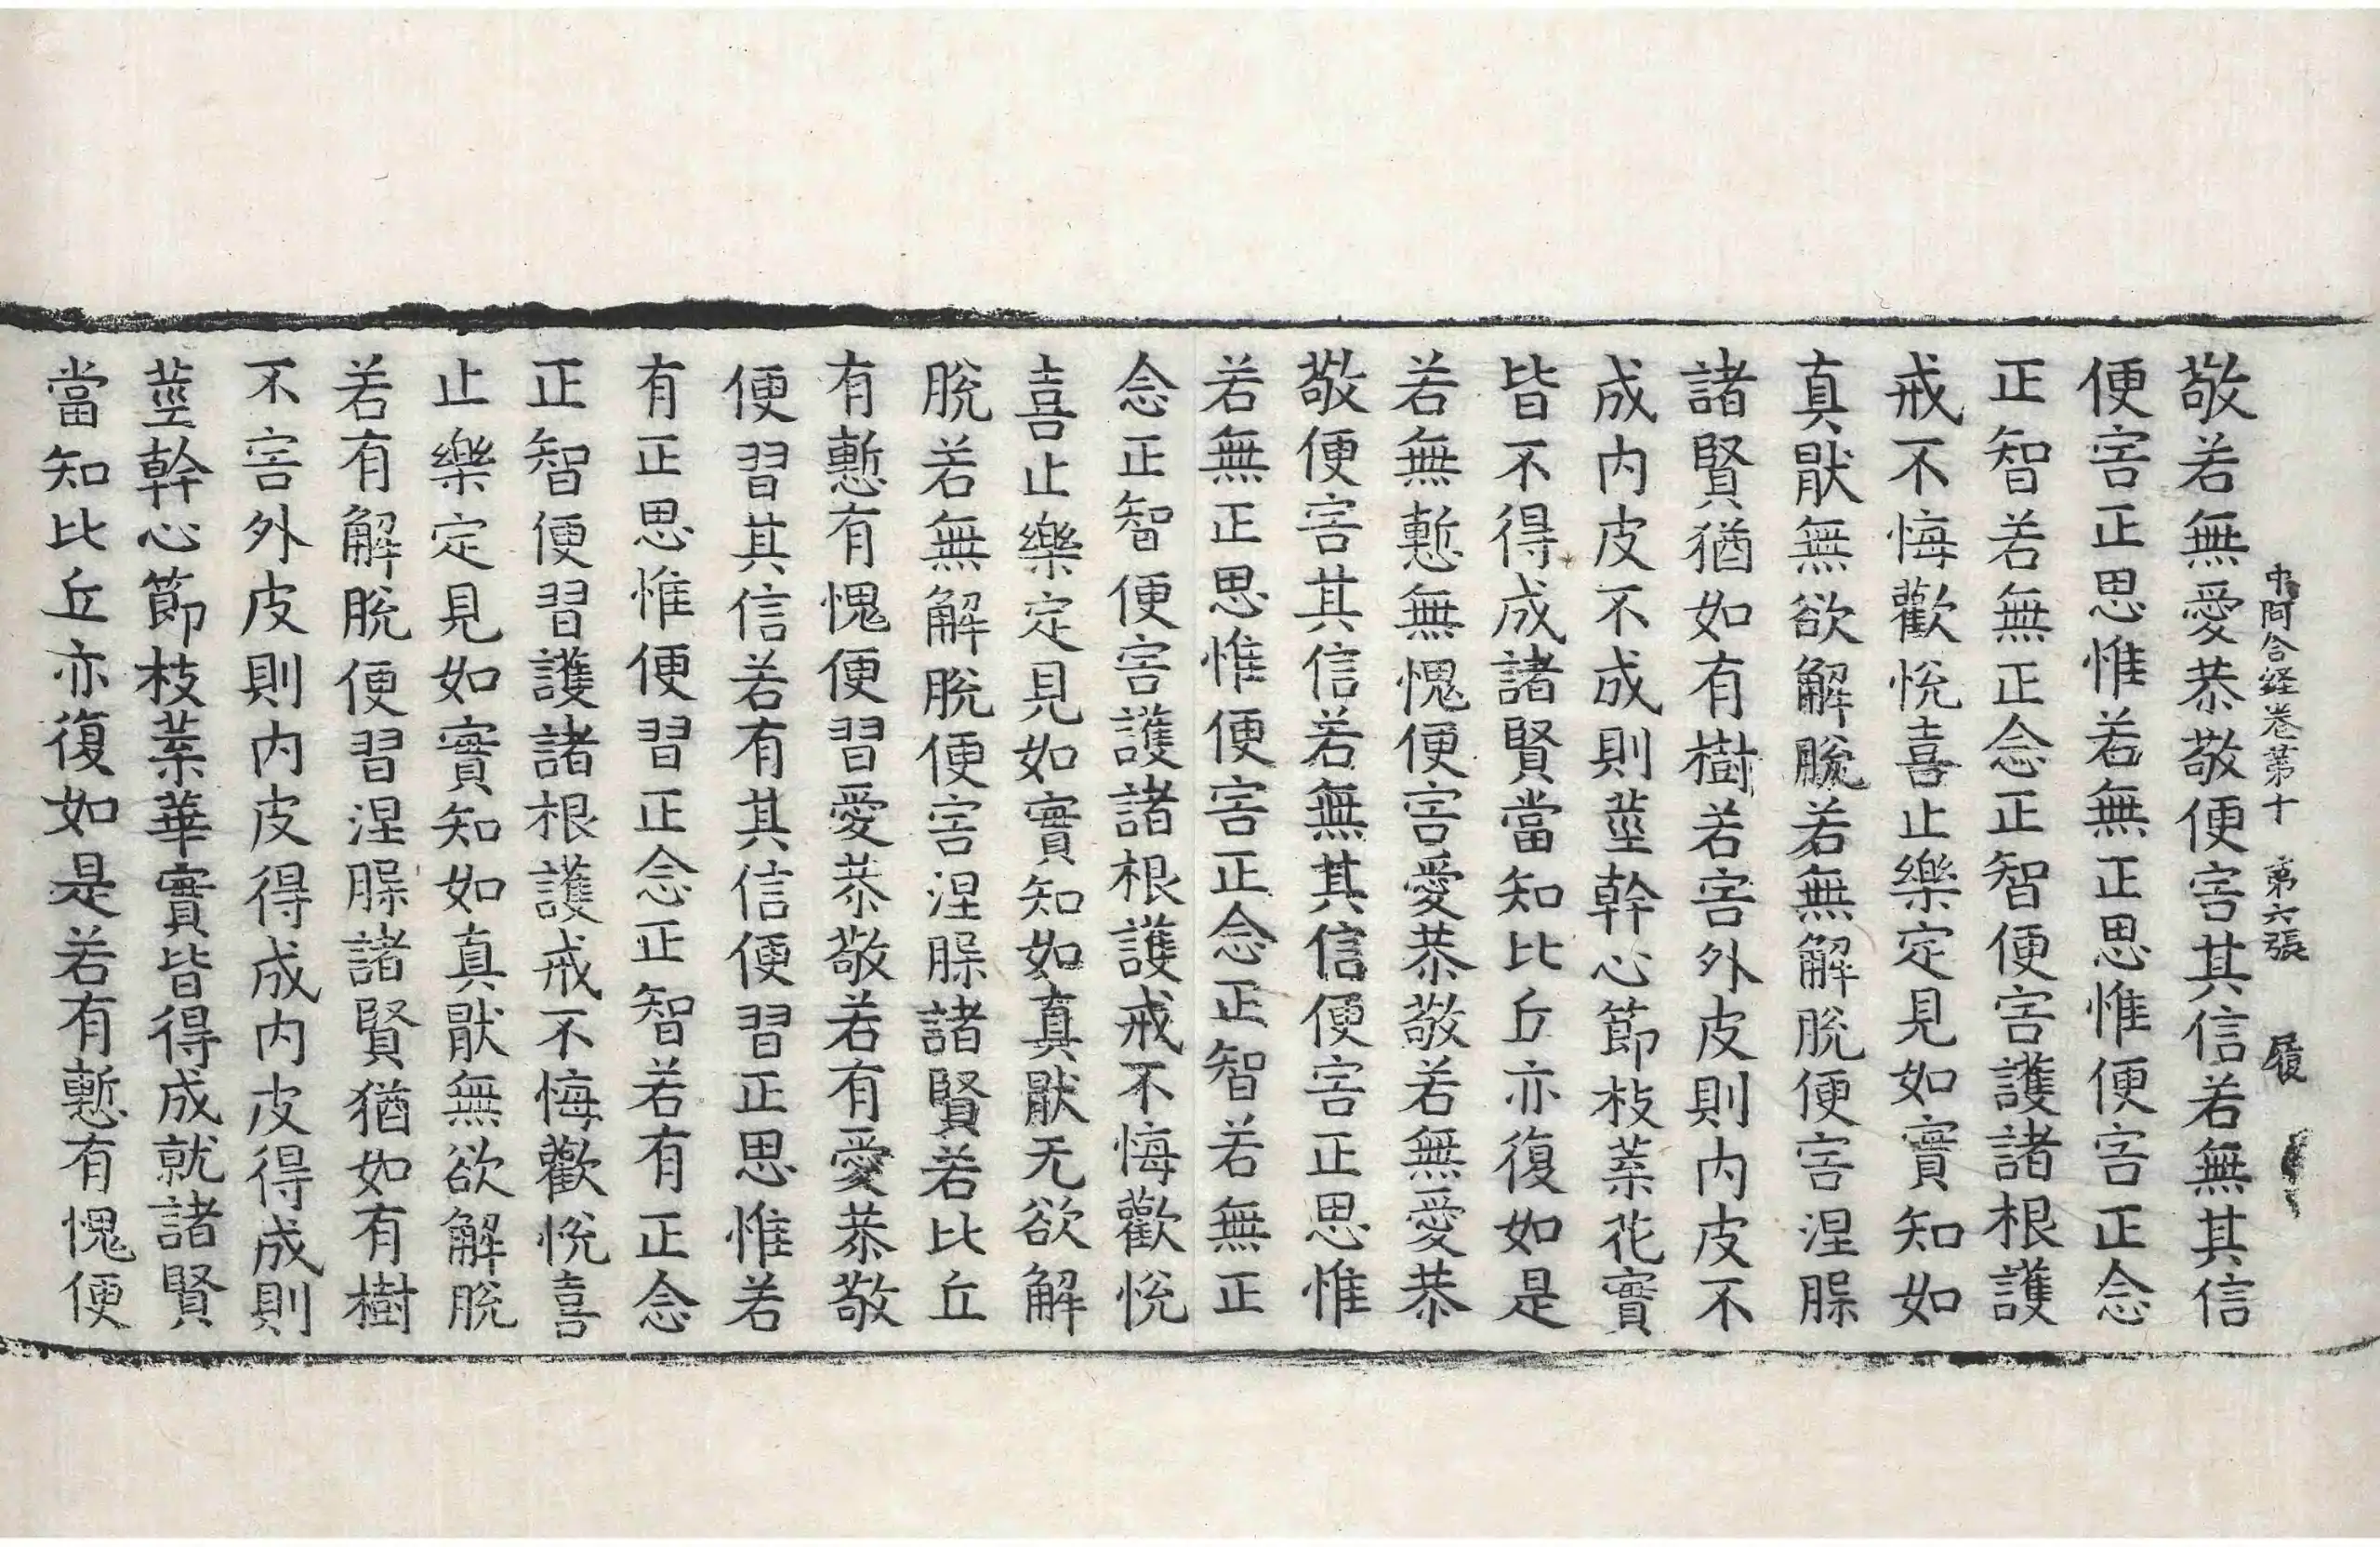 中阿含経卷第十 第六張 履
敬若無愛恭敬便害其信若無其信
便害正思惟若無正思惟便害正念
正智若無正念正智便害護諸根護
戒不悔歡悅喜止樂定見如實知如
真猒無欲解脫若無解脫便害涅槃
諸賢猶如有樹若害外皮則内皮不
成内皮不成則莖幹心節枝葉花實
皆不得成諸賢當知比丘亦復如是
若無慙無愧便害愛恭敬若無愛恭
敬便害其信若無其信便害正思惟
若無正思惟便害正念正智若無正
念正智便害護諸根護戒不悔歡悅
喜止樂定見如實知如真猒无欲解
脫若無解脫便害涅槃諸賢若比丘
有慙有愧便習愛恭敬若有愛恭敬
便習其信若有其信便習正思惟若
有正思惟便習正念正智若有正念
正智便習護諸根護戒不悔歡悅喜
止樂定見如實知如真猒無欲解脫
若有解脫便習涅槃諸賢猶如有樹
不害外皮則内皮得成内皮得成則
莖幹心節枝葉華實皆得成就諸賢
當知比丘亦復如是若有慙有愧便